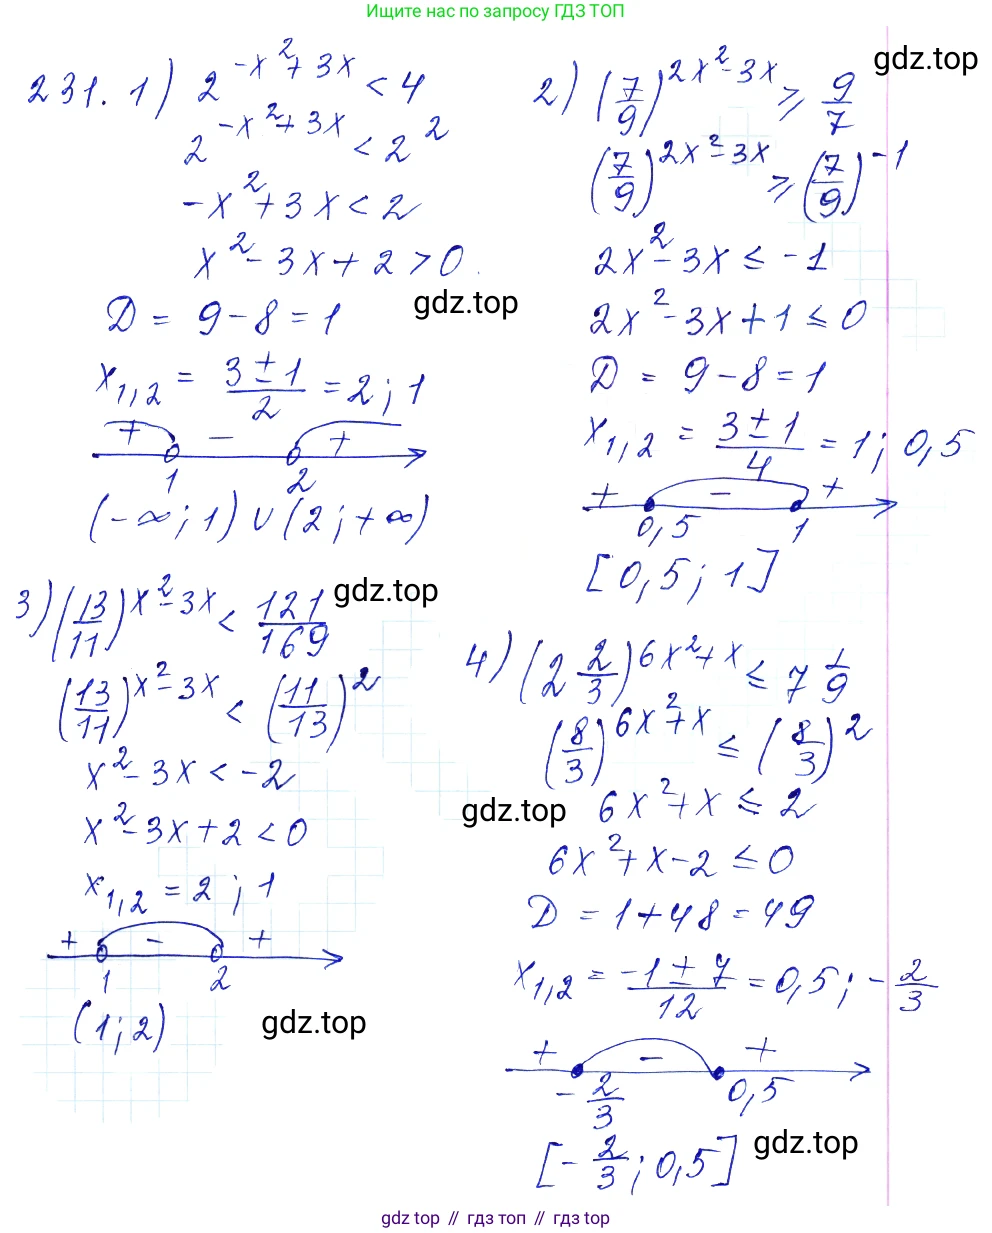 Ищите нас по запросу ГДЗ ТОП
gdz.top
231. 1) 2^(-x²+3x) < 4
2^(-x²+3x) < 2²
-x²+3x < 2
x²-3x+2 > 0
gdz.top
D = 9-8 = 1
x₁,₂ = (3±1)/2 = 2; 1
+ - +
1 2
(-∞; 1) ∪ (2; +∞)
2) (7/9)^(2x²-3x) ≥ 9/7
(7/9)^(2x²-3x) ≥ (7/9)^-1
2x²-3x ≤ -1
2x²-3x+1 ≤ 0
D = 9-8 = 1
x₁,₂ = (3±1)/4 = 1; 0,5
+ - +
0,5 1
[0,5; 1]
3) (13/11)^(x²-3x) < 121/169
gdz.top
(13/11)^(x²-3x) < (11/13)²
x²-3x < -2
x²-3x+2 < 0
x₁,₂ = 2; 1
+ - +
1 2
(1; 2)
gdz.top
4) (2 2/3)^(6x²+x) ≤ 7 1/9
(8/3)^(6x²+x) ≤ (8/3)²
gdz.top
6x²+x ≤ 2
6x²+x-2 ≤ 0
D = 1+48 = 49
x₁,₂ = (-1±7)/12 = 0,5; -2/3
+ - +
-2/3 0,5
[-2/3; 0,5]
gdz.top
gdz top // гдз топ // gdz top